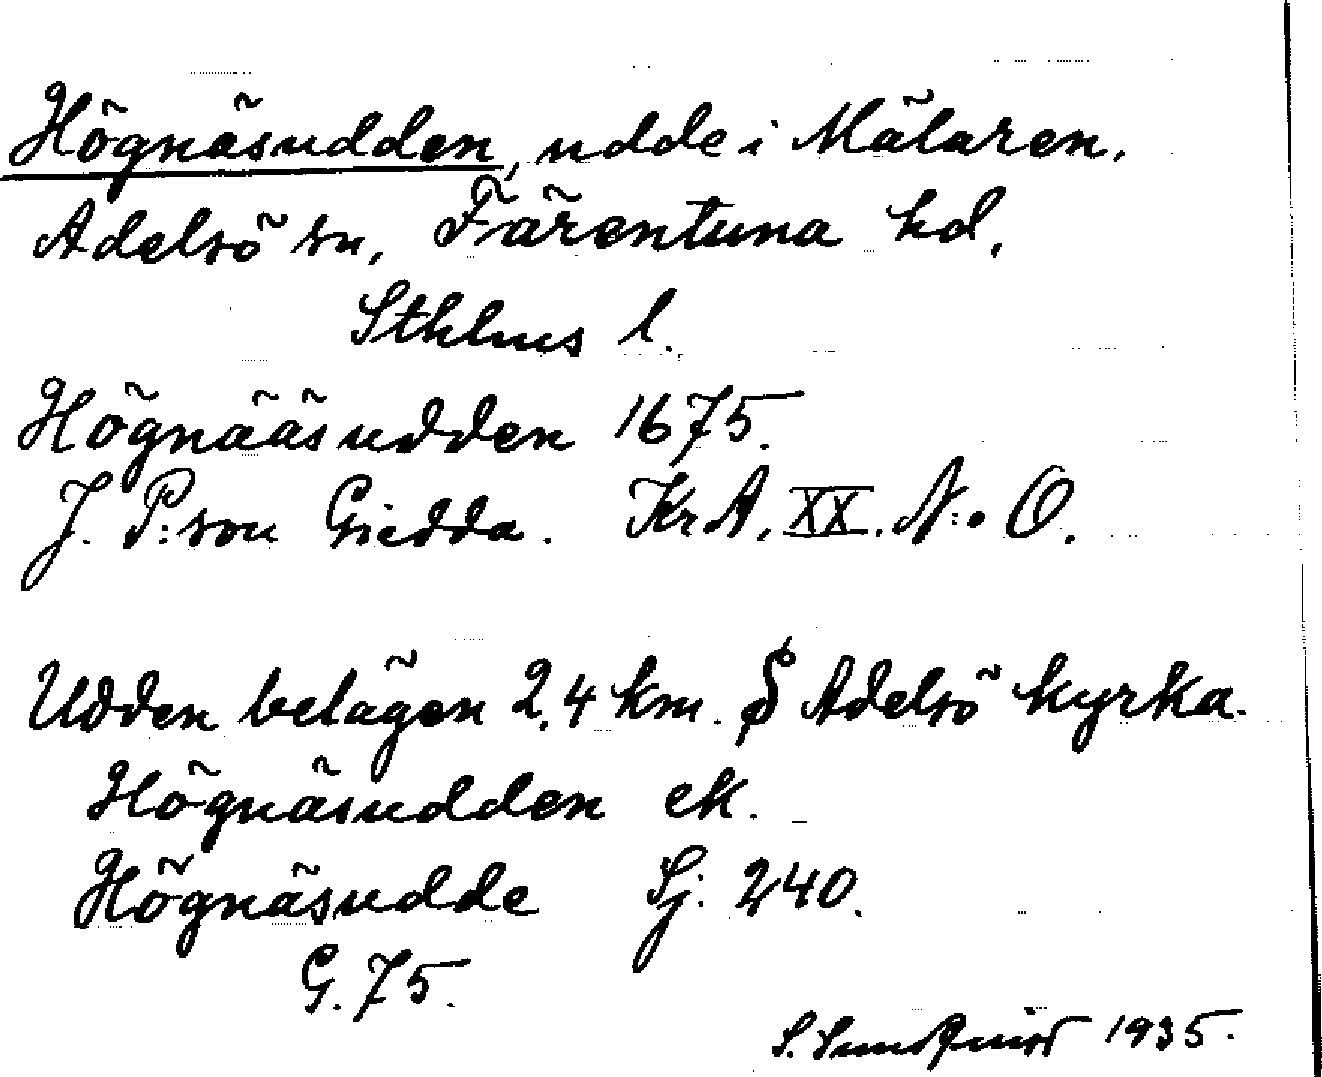 Högnäsudden, udde i Mälaren.
Adelsö sn, Färentuna hd,
Sthlms l.
Högnääsudden 1675.
J. P:son Giedda. KrA. XX. N:o O.
Udden belägen 2,4 km. S Adelsö kyrka.
Högnäsudden ek.
Högnäsudde Sj: 240.
G. 75.
S. Sundquist 1935.